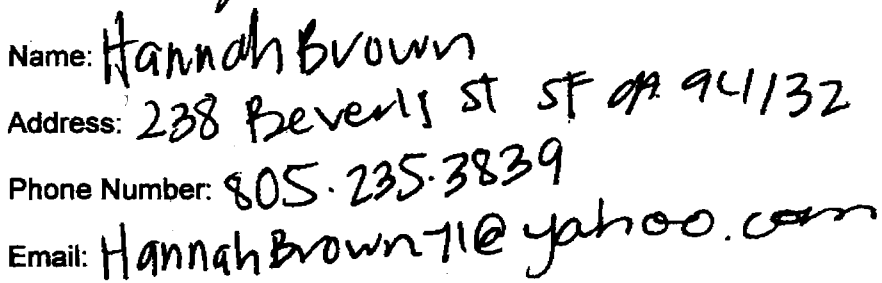 Name: Hannah Brown
Address: 238 Beverly St SF CA 94132
Phone Number: 805.235.3839
Email: HannahBrown71@yahoo.com